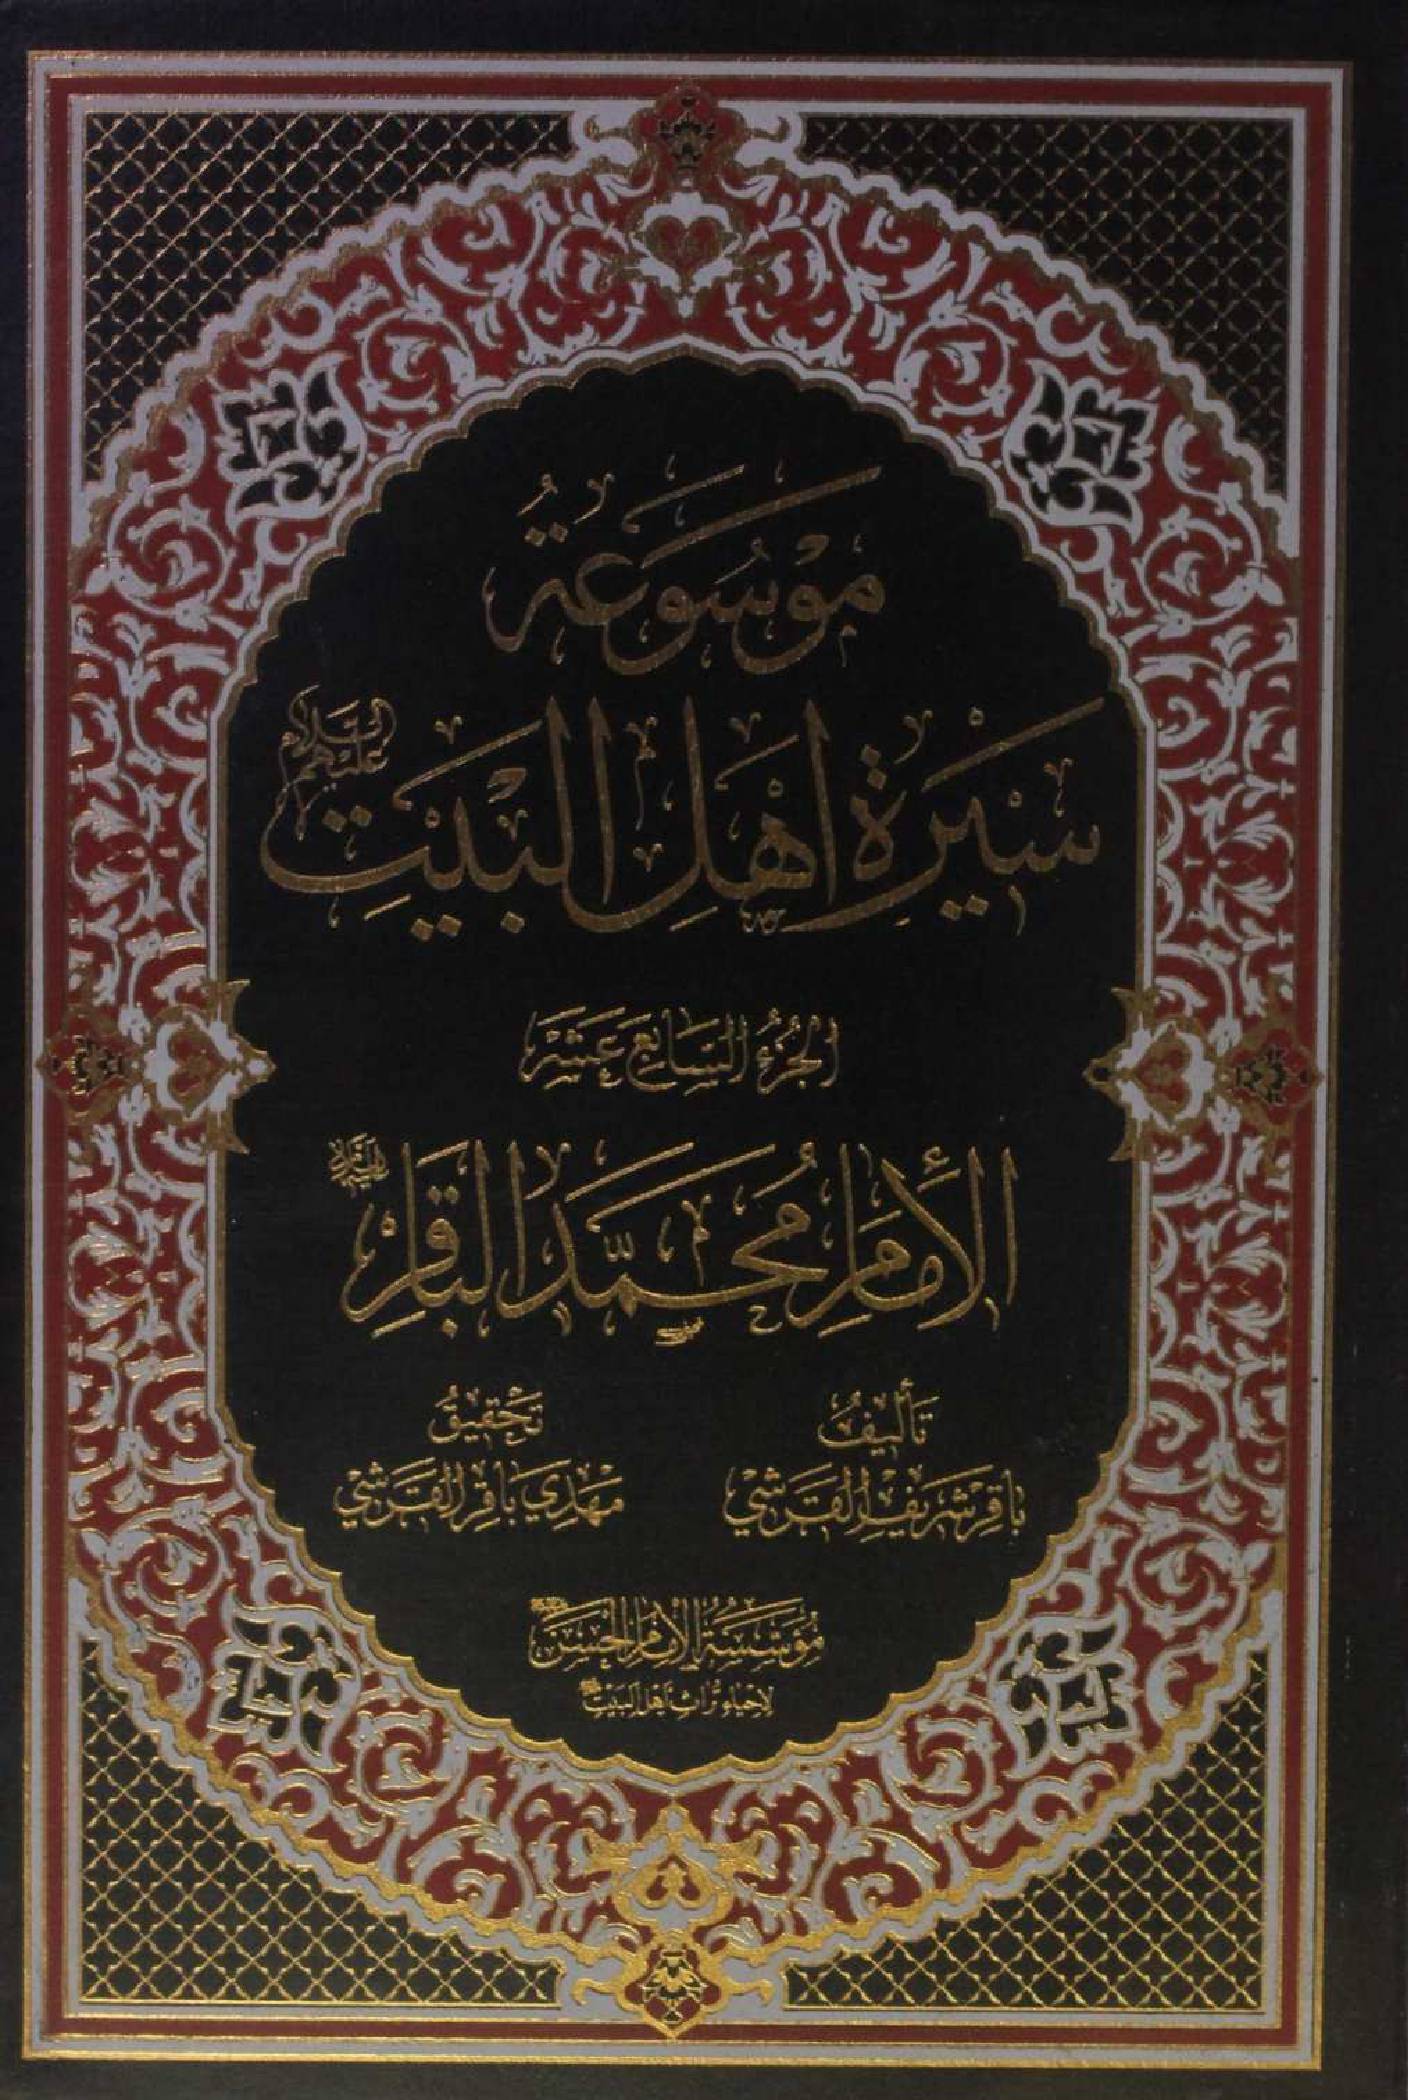 مَوْسُوعَةُ
سِيْرَةِ أَهْلِ الْبَيْتِ عَلَيْهِمُ السَّلَامُ
الجُزْءُ السَّابِعَ عَشَرَ
الإِمَامُ مُحَمَّدُ الْبَاقِرُ عَلَيْهِ السَّلَامُ
تَأْلِيفُ
بَاقِر شَرِيف الْقَرَشِي
تَحْقِيقُ
مَهْدِي بَاقِر الْقَرَشِي
مُؤَسَّسَةُ الإِمَامِ الْحَسَنِ
لِإِحْيَاءِ تُرَاثِ أَهْلِ الْبَيْتِ